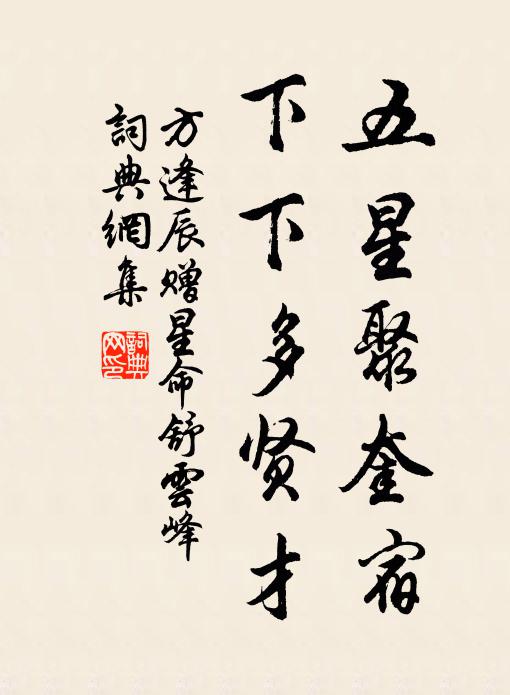 五星聚奎宿
下下多贤才
方逢辰赠星命舒雲峰
詞典網集
詞典網印